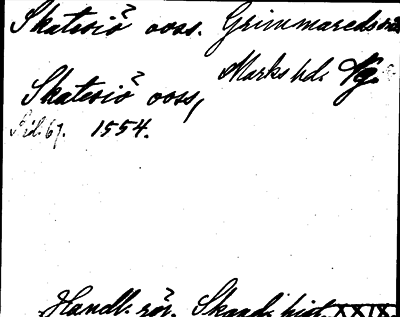 Skatesiö ooss. Grimmareds
Marks hd.
Skatesiö ooss,
Sid. 67. 1554.
Handl. rör. Skand. hist. XXIX